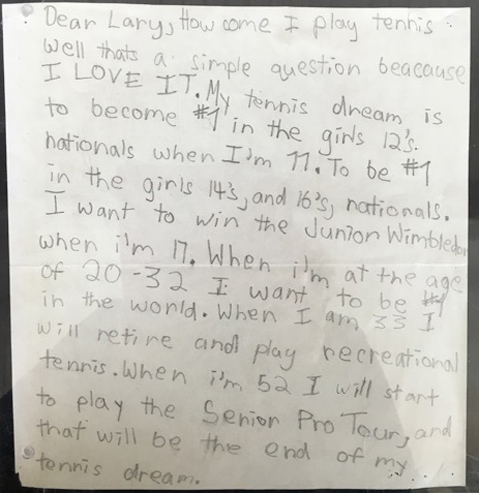 Dear Lary, How come I play tennis
well thats a simple question beacause
I LOVE IT. My tennis dream is
to become #1 in the girls 12's.
nationals when I'm 11. To be #1
in the girls 14's, and 16's, nationals.
I want to win the Junior Wimbledon
when i'm 17. When i'm at the age
of 20-32 I want to be #1
in the world. When I am 33 I
will retire and play recreational
tennis. When i'm 52 I will start
to play the Senior Pro Tour, and
that will be the end of my
tennis dream.